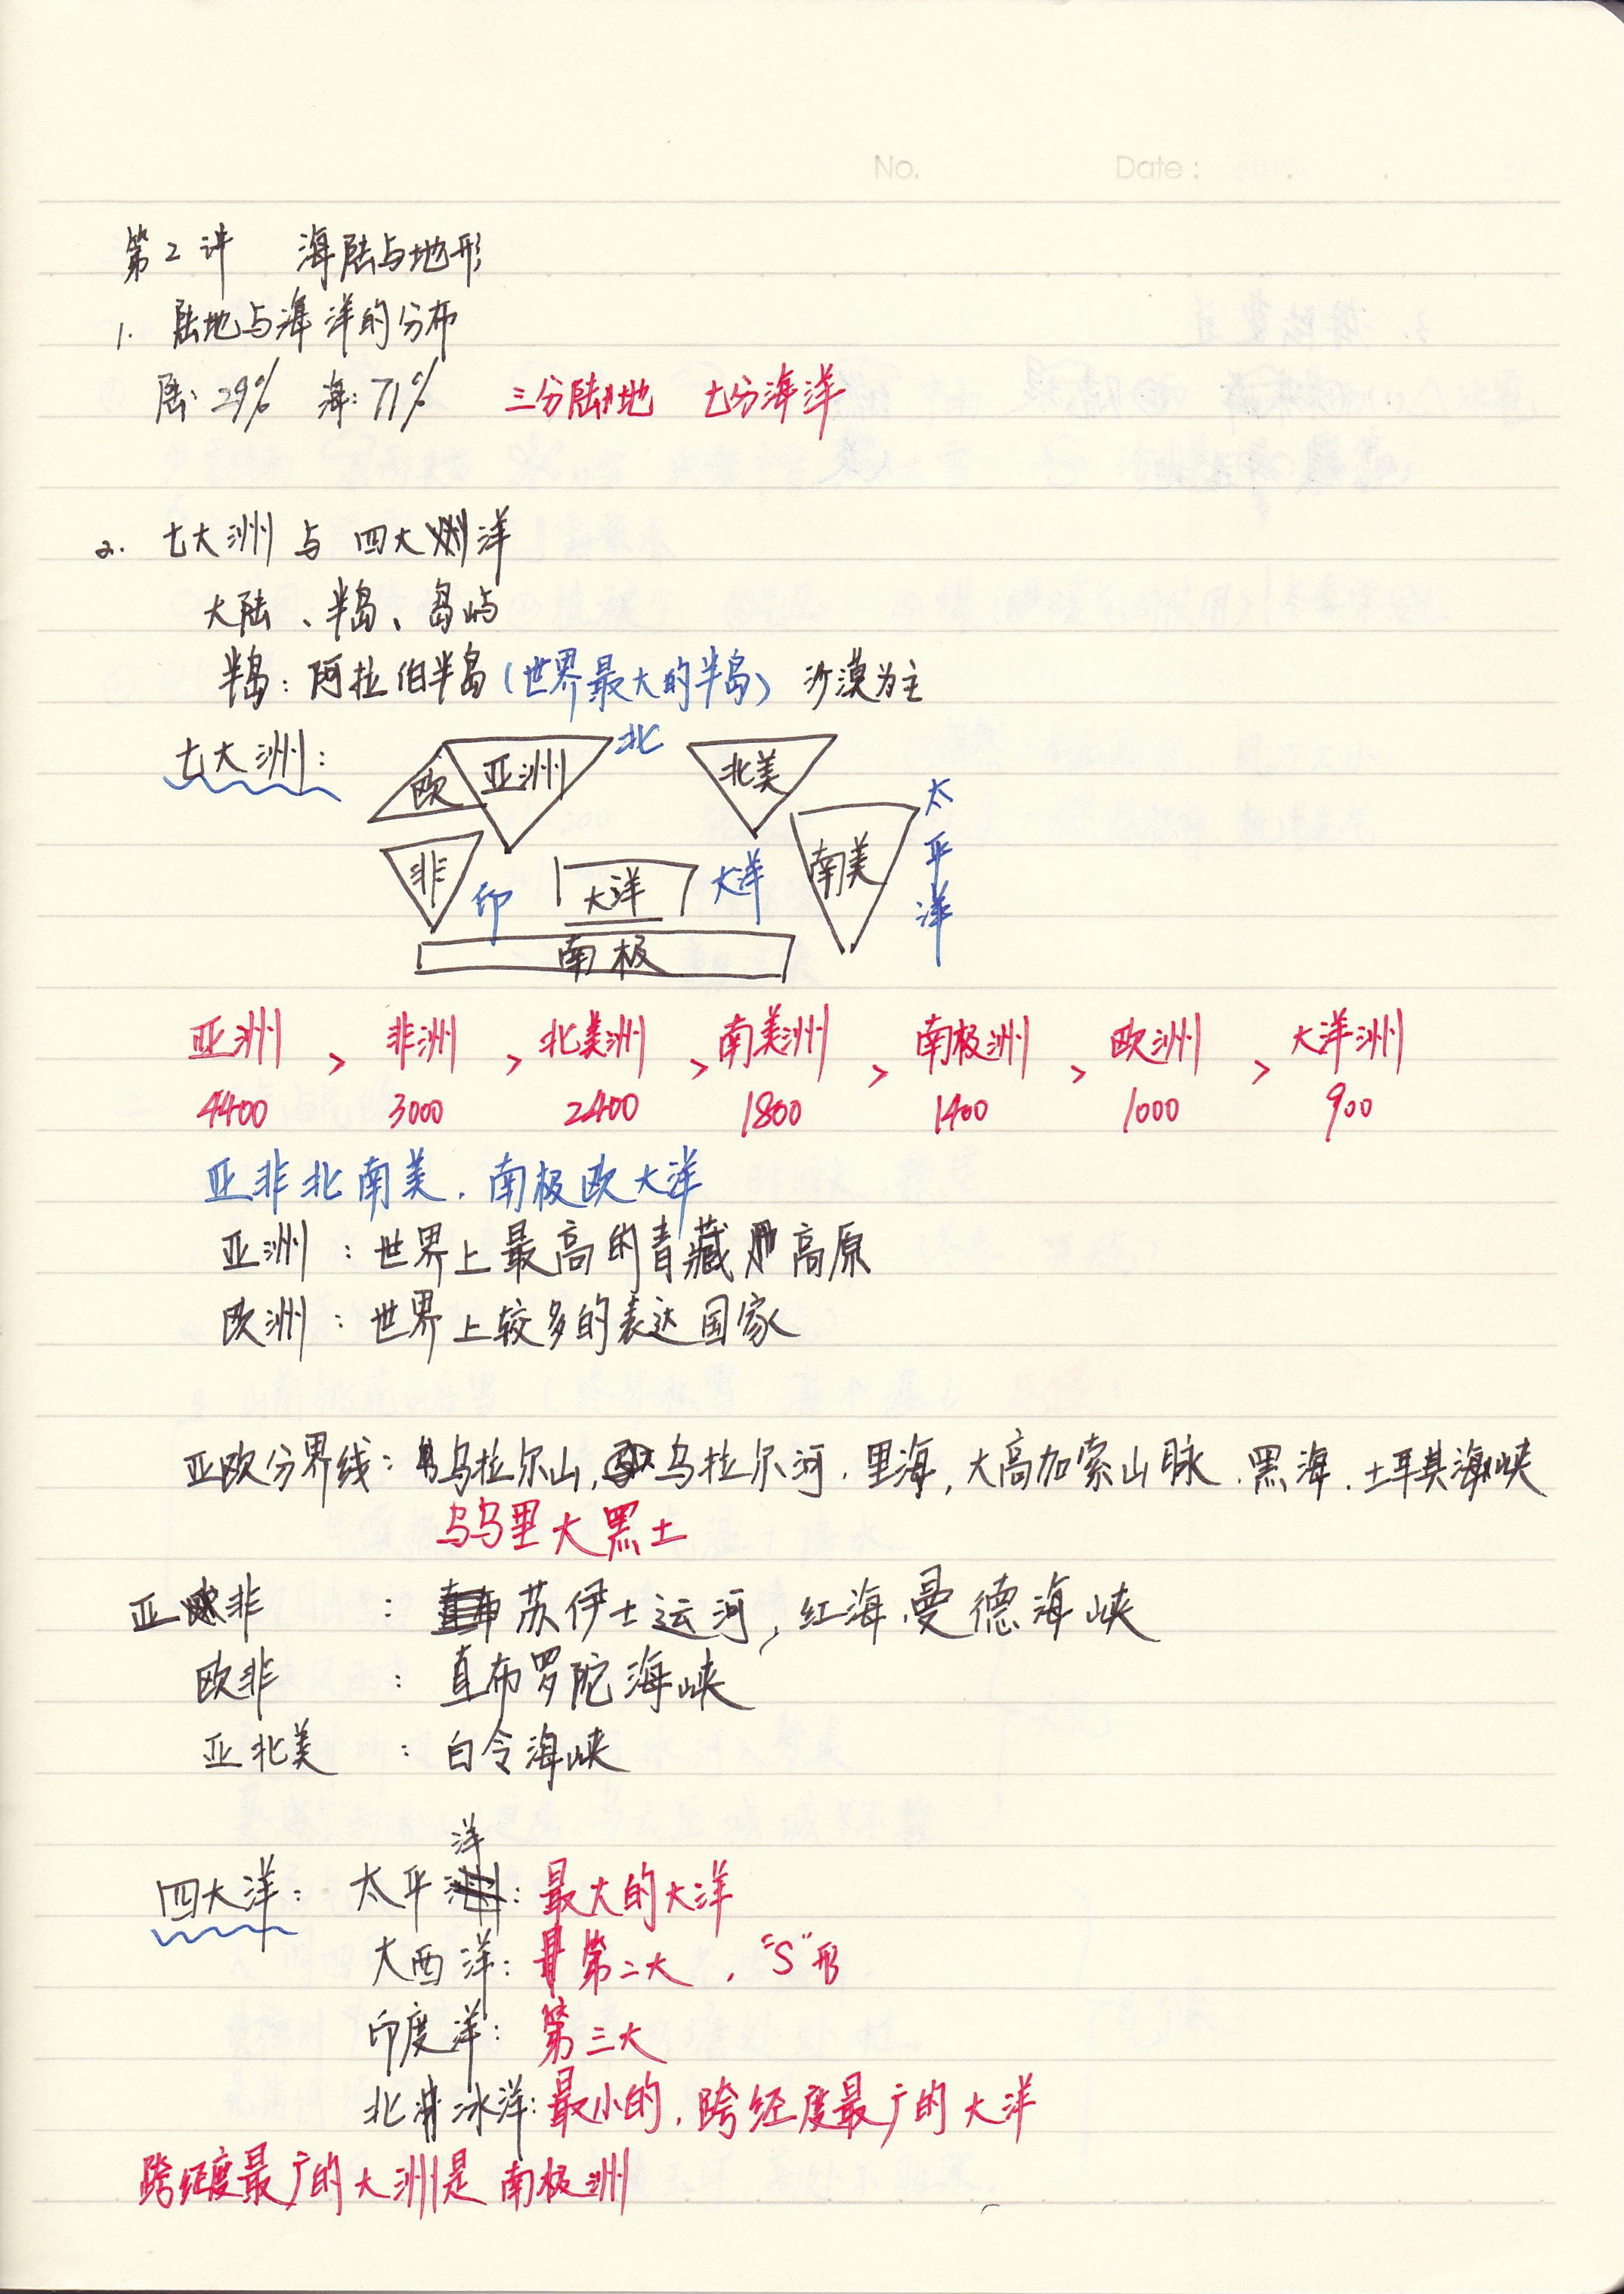 No. Date:
第2讲 海陆与地形
1. 陆地与海洋的分布
陆:29% 海:71% 三分陆地 七分海洋
2. 七大洲与四大洋
大陆、半岛、岛屿
半岛:阿拉伯半岛(世界最大的半岛) 沙漠为主
七大洲:
欧 亚洲 北 北美
太平洋
非 印 大洋 大洋 南美
南极
亚洲 > 非洲 > 北美洲 > 南美洲 > 南极洲 > 欧洲 > 大洋洲
4400 3000 2400 1800 1400 1000 900
亚非北南美.南极欧大洋
亚洲:世界上最高的青藏高原
欧洲:世界上较多的表达国家
亚欧分界线:乌拉尔山,乌拉尔河.里海,大高加索山脉.黑海.土耳其海峡
乌乌里大黑土
亚非:苏伊士运河,红海.曼德海峡
欧非:直布罗陀海峡
亚北美:白令海峡
四大洋:太平洋:最大的大洋
大西洋:第二大,“S”形
印度洋:第三大
北冰洋:最小的.跨经度最广的大洋
跨经度最广的大洲是南极洲